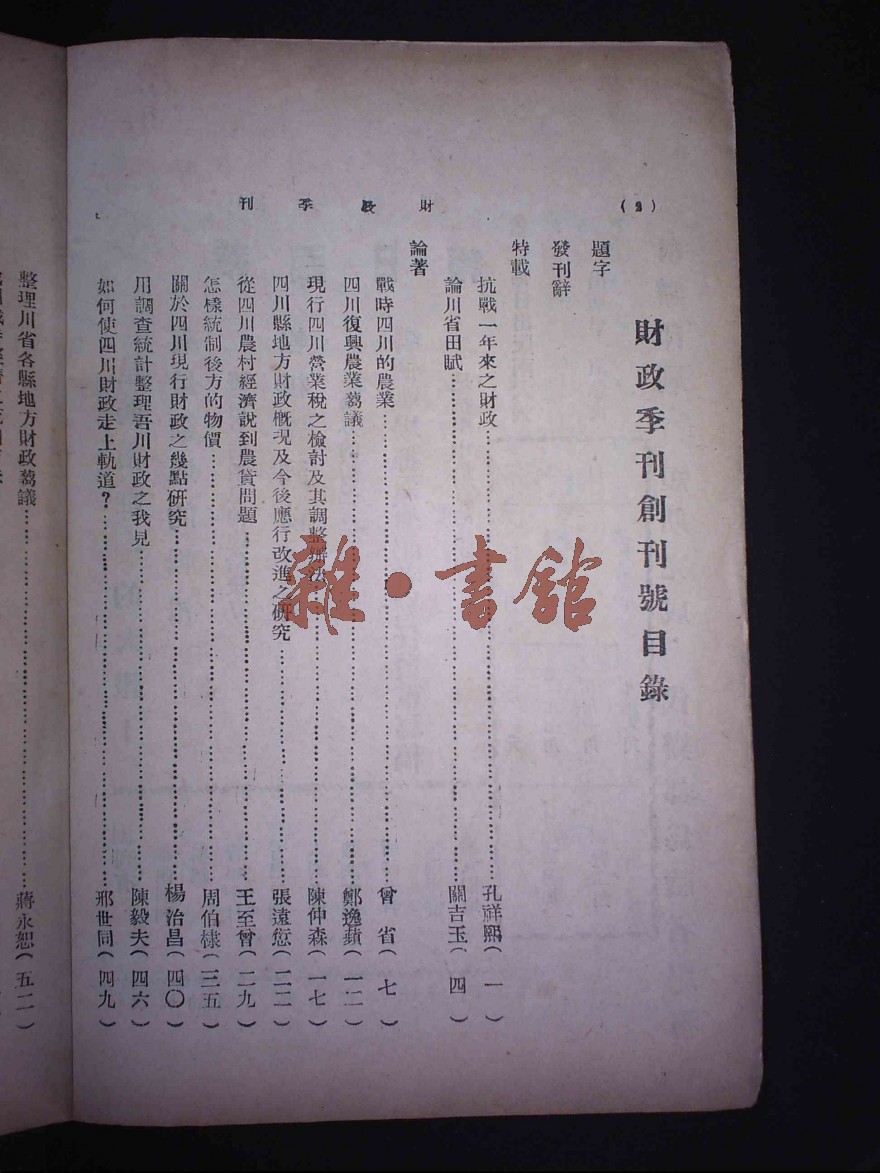 財政季刊
財政季刊創刊號目錄
題字
發刊辭
特載
抗戰一年來之財政……孔祥熙(一)
論川省田賦……關吉玉(四)
論著
戰時四川的農業……曾省(七)
四川復興農業芻議……鄭逸蘋(一二)
現行四川營業稅之檢討及其調整辦法……陳仲森(一七)
四川縣地方財政概況及今後應行改進之研究……張遠愆(二二)
從四川農村經濟說到農貸問題……王至曾(二九)
怎樣統制後方的物價……周伯棣(三五)
關於四川現行財政之幾點研究……楊治昌(四〇)
用調查統計整理吾川財政之我見……陳毅夫(四六)
如何使四川財政走上軌道?……邢世同(四九)
整理川省各縣地方財政芻議……蔣永恕(五二)
雜·書館